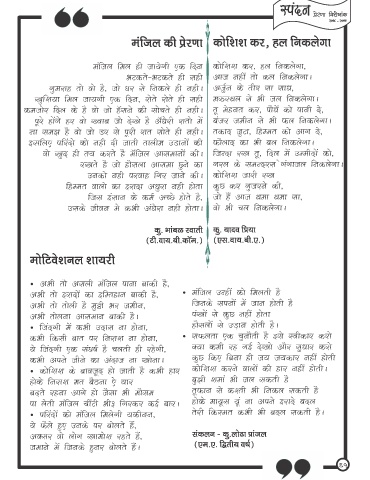 स्पंदन
मंजिल की प्रेरणा
मंजिल मिल ही जायेगी एक दिन
भटकते-भटकते ही सही
गुमराह तो वो है, जो घर से निकले ही नहीं
खुशियां मिल जायगी एक दिन, रोते रोते ही सही
कमजोर दिल के है वो जो हँसने की सोचते ही नहीं।
पूरे होंगे हर वो ख्वाब जो देखे है अंधेरी रातो में
ना समझ है वो जो डर से पूरी रात सोते ही नहीं।
इसलिए परिंदो को नहीं दी जाती तालीम उड़ानों की
वो खुद ही तय करते है मंजिल आसमानों की।
रखते है जो हौसला आसमां छुने का
उनको नही परवाह गिर जाने की।
हिम्मत वालो का इरादा अधुरा नहीं होता
जिस इंसान के कर्म अच्छे होते है,
उसके जीवन मे कभी अंधेरा नही होता।
कु. मांबळ स्वाती
(टी.वाय.बी.कॉम.)
कोशिश कर, हल निकलेगा
कोशिश कर, हल निकलेगा,
आज नहीं तो कल निकलेगा।
अर्जुन के तीर सा साध,
मरुस्थल से भी जल निकलेगा।
तू मेहनत कर, पौधें को पानी दे,
बंजर जमीन से भी फल निकलेगा।
ताकद जुटा, हिम्मत को आग दे,
फौलाद का भी बल निकलेगा।
जिंदा रख तू, दिल में उम्मीदों को,
गरल के समन्दरसे गंगाजल निकलेगा।
कोशिश जारी रख
कुछ कर गुजरने को,
जो हैं आज थमा थमा सा,
वो भी चल निकलेगा।
कु. यादव प्रिया
(एस.वाय.बी.ए.)
मोटिवेशनल शायरी
• अभी तो असली मंजिल पाना बाकी है,
अभी तो इरादों का इम्तिहान बाकी है,
अभी तो तोली है मुठ्ठी भर जमीन,
अभी तोलना आसमान बाकी है।
• जिंदगी में कभी उदास ना होना,
कभी किसी बात पर निराश ना होना,
ये जिंदगी एक संघर्ष है चलती ही रहेगी,
कभी अपने जीने का अंदाज ना खोना।
• कोशिश के बावजूद हो जाती है कभी हार
होके निराश मत बैठना ऐ यार
बढ़ते रहना आगे हो जैसा भी मौसम
पा लेती मंजिल चींटी भीइ गिरकर कई बार।
• परिंदो को मंजिल मिलेगी यकीनन,
ये फैले हुए उनके पर बोलते हैं,
अक्सर वो लोग खामोश रहते हैं,
जमाने में जिनके हुनर बोलते हैं।
• मंजिल उन्हीं को मिलती है
जिनके सपनों में जान होती है
पंखों से कुछ नहीं होता
हौसलों से उड़ान होती है।
• सफलता एक चुनौती है इसे स्वीकार करो
क्या कमी रह गई देखो और सुधार करो
कुछ किए बिना ही जय जयकार नहीं होती
कोशिश करने वालों की हार नहीं होती।
• बुझी शमां भी जल सकती है
तूफान से कश्ती भी निकल सकती है
होके मायूस यूं ना अपने इरादे बदल
तेरी किस्मत कभी भी बदल सकती है।
संकलन - कु. लोढा प्रांजल
(एम.ए. द्वितीय वर्ष)